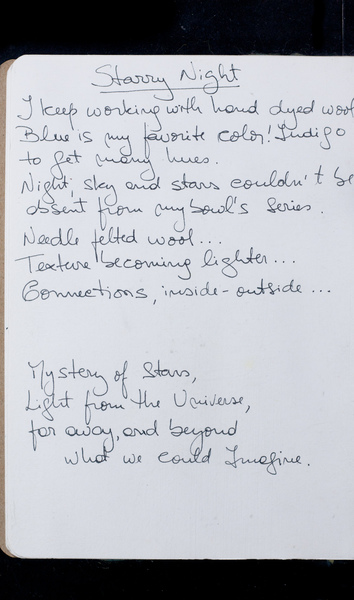 Starry Night
I keep working with hand dyed wool
Blue is my favorite color! Indigo
to get many hues.
Night, sky and stars couldn't be
absent from my bowl's series.
Needle felted wool...
Texture becoming lighter...
Connections, inside-outside...
Mystery of Stars,
Light from the Universe,
far away, and beyond
what we could Imagine.